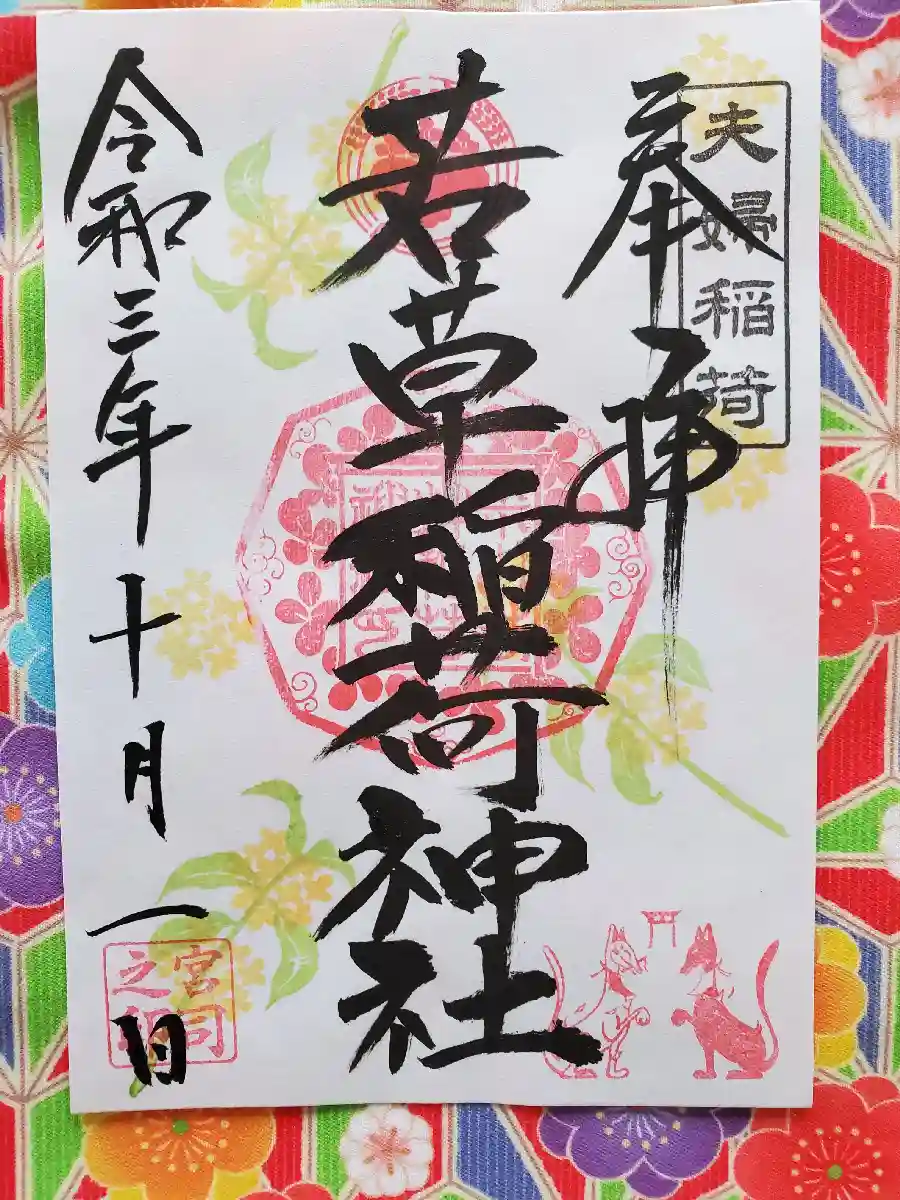 夫婦稲荷
奉拝
若草稲荷神社
令和三年十月一日
宮司
之印